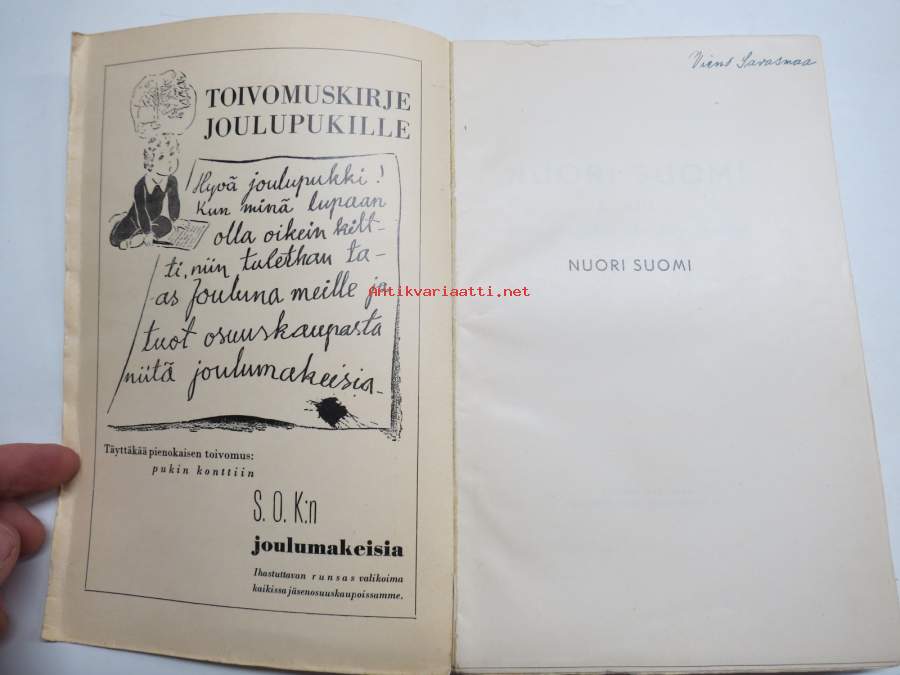 TOIVOMUSKIRJE
JOULUPUKILLE
Hyvä joulupukki!
Kun minä lupaan
olla oikein kilt-
ti, niin tulethan ta-
as Jouluna meille ja
tuot osuuskaupasta
niitä joulumakeisia.
Täyttäkää pienokaisen toivomus:
pukin konttiin
S. O. K:n
joulumakeisia
Ihastuttavan runsas valikoima
kaikissa jäsenosuuskaupoissamme.
Savasmaa
NUORI SUOMI
Antikvariaatti.net